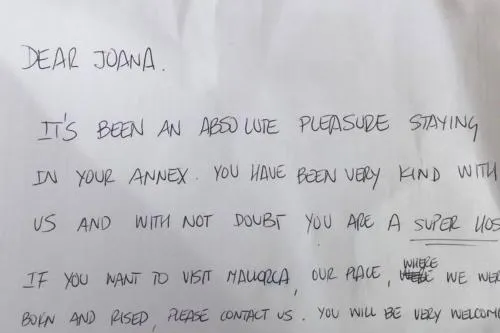 DEAR JOANA.
IT'S BEEN AN ABSOLUTE PLEASURE STAYING
IN YOUR ANNEX. YOU HAVE BEEN VERY KIND WITH
US AND WITH NOT DOUBT YOU ARE A SUPER HOS
IF YOU WANT TO VISIT MALLORCA, OUR PLACE, WHERE WE WER
BORN AND RISED, PLEASE CONTACT US. YOU WILL BE VERY WELCOME